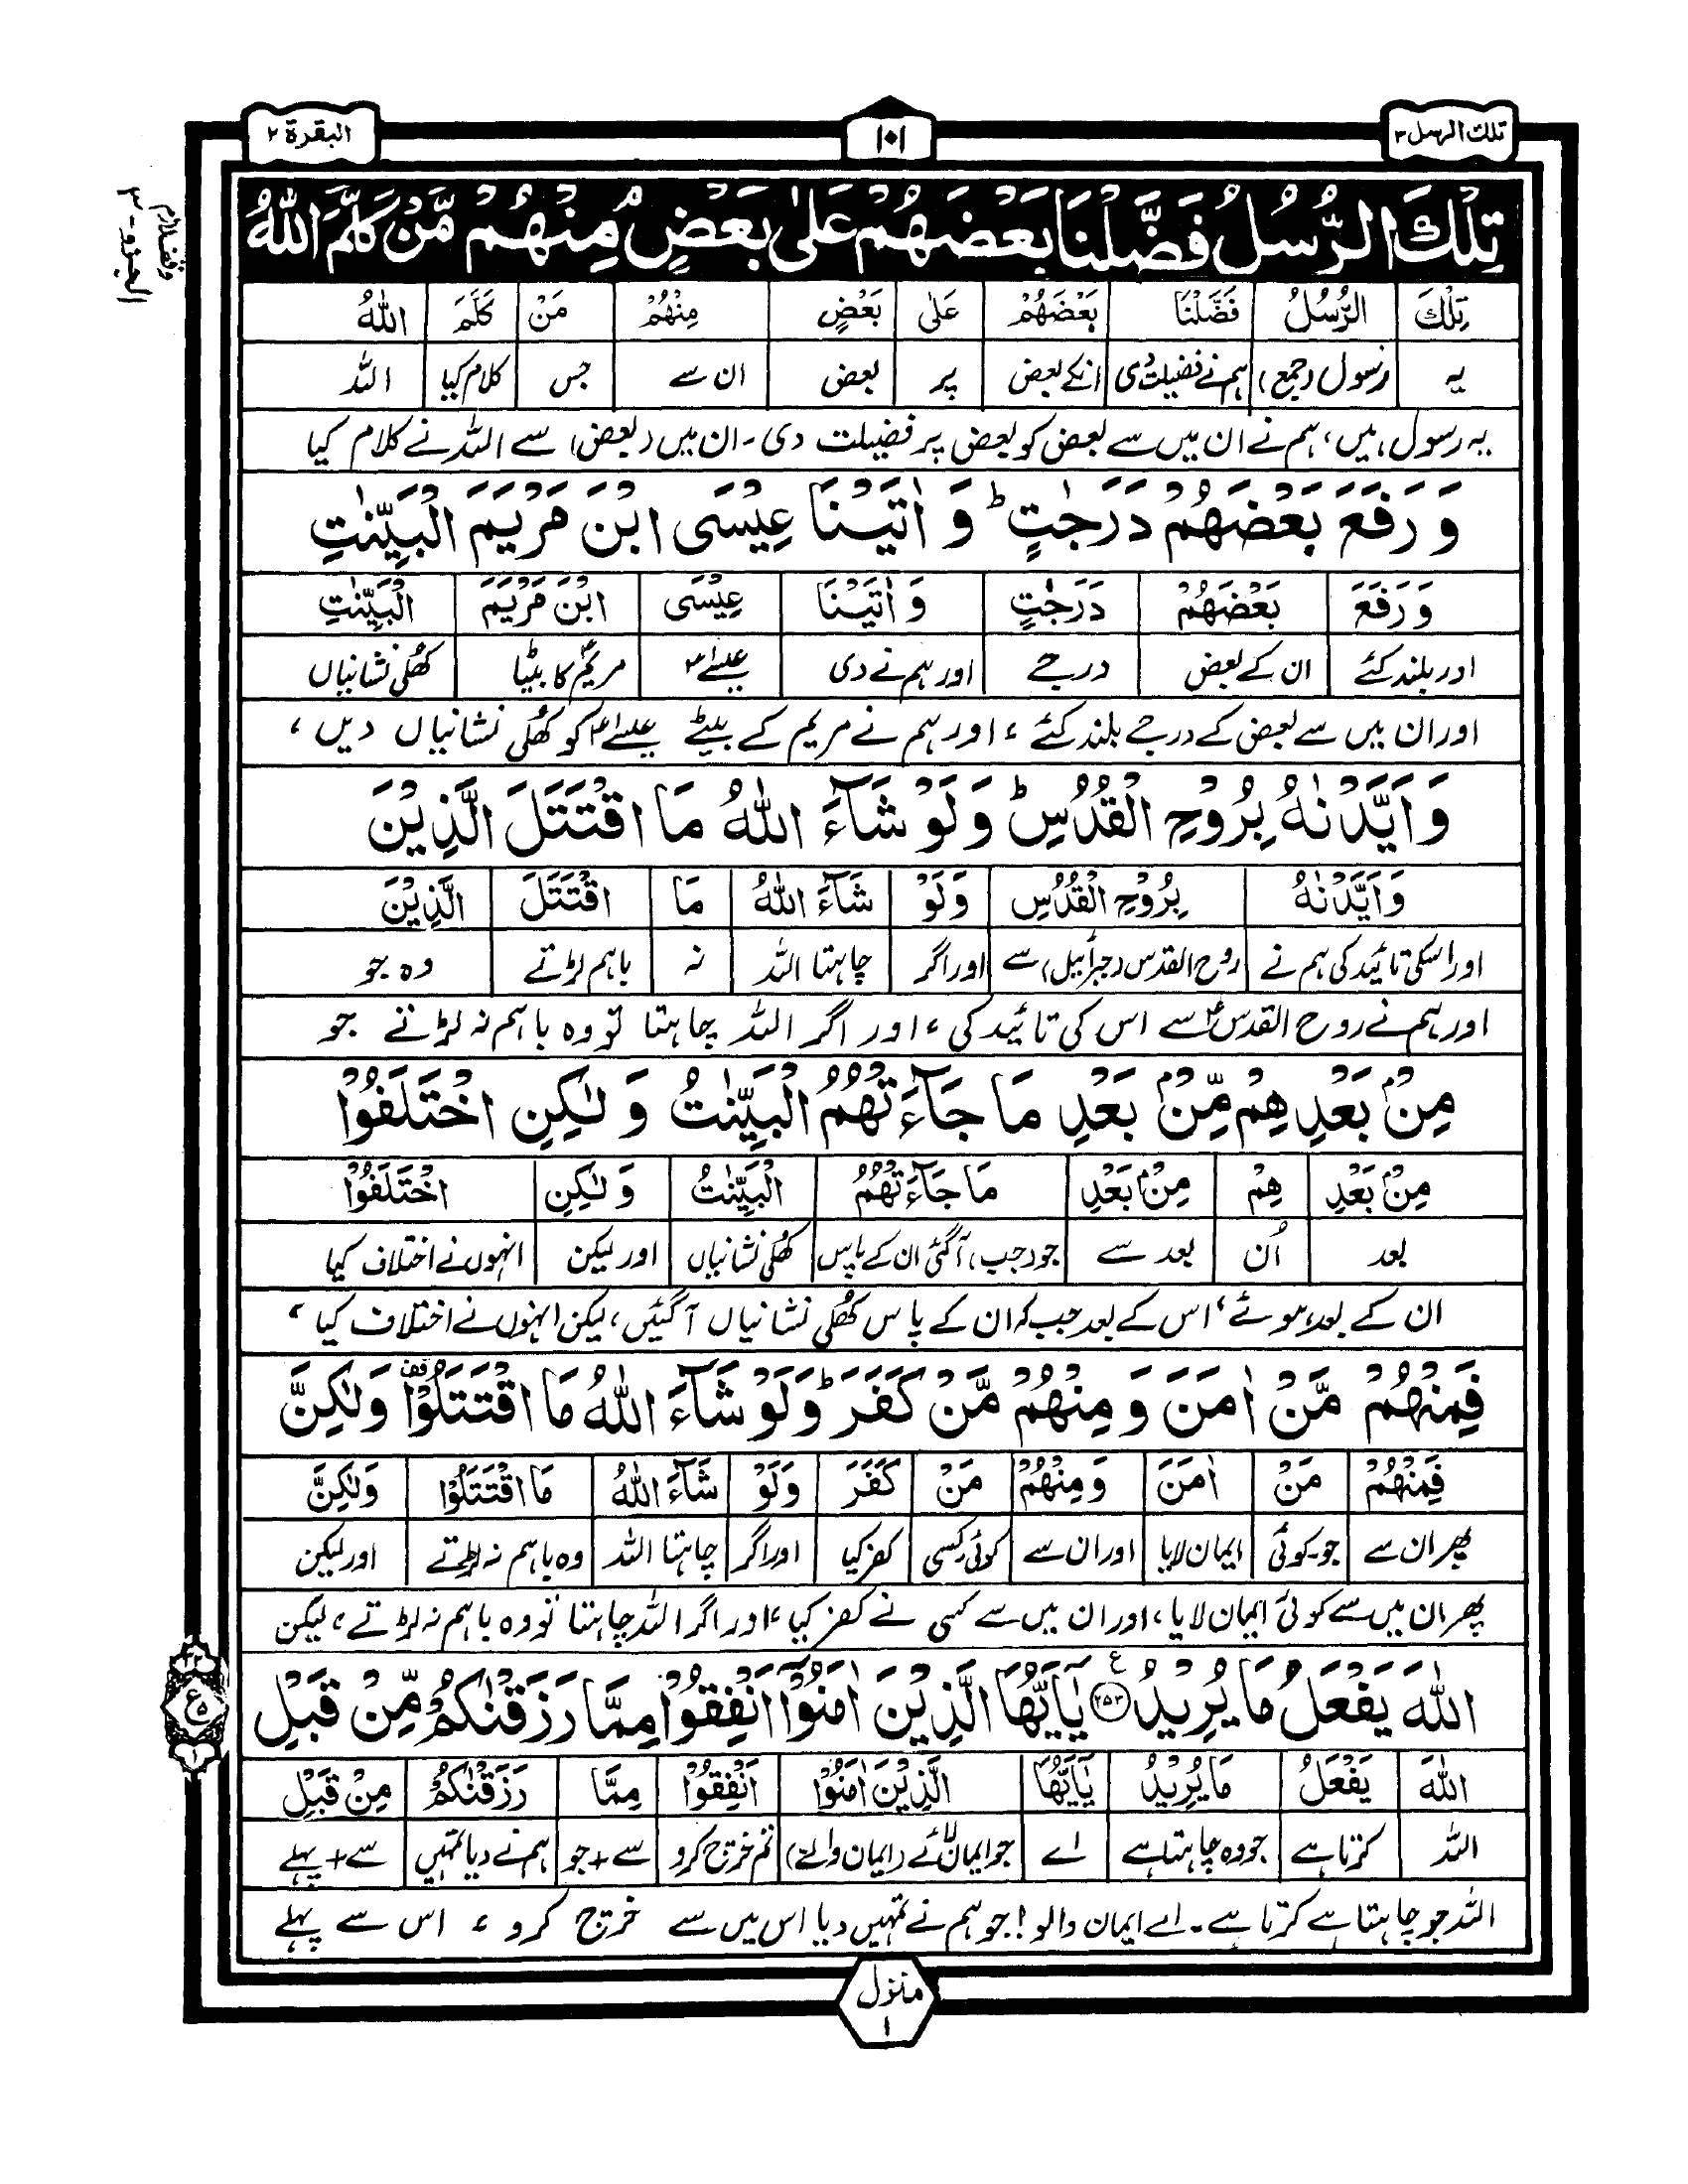 تلك الرسل ٣
١٠١
البقرة ٢
وقف لازم
الجزو - ٣
تِلْكَ الرُّسُلُ فَضَّلْنَا بَعْضَهُمْ عَلٰى بَعْضٍ ۘ مِنْهُمْ مَّنْ كَلَّمَ اللّٰهُ
تِلْكَ الرُّسُلُ فَضَّلْنَا بَعْضَهُمْ عَلٰى بَعْضٍ مِنْهُمْ مَنْ كَلَّمَ اللّٰهُ
یہ رسول (جمع) ہم نے فضیلت دی انکے بعض پر بعض ان سے جس کلام کیا اللہ
یہ رسول ہیں، ہم نے ان میں سے بعض کو بعض پر فضیلت دی۔ ان میں (بعض) سے اللہ نے کلام کیا
وَ رَفَعَ بَعْضَهُمْ دَرَجٰتٍ ؕ وَ اٰتَيْنَا عِيْسَى ابْنَ مَرْيَمَ الْبَيِّنٰتِ
وَ رَفَعَ بَعْضَهُمْ دَرَجٰتٍ وَ اٰتَيْنَا عِيْسَى ابْنَ مَرْيَمَ الْبَيِّنٰتِ
اور بلند کئے ان کے بعض درجے اور ہم نے دی عیسےٰؑ مریمؑ کا بیٹا کھُلی نشانیاں
اور ان میں سے بعض کے درجے بلند کئے، اور ہم نے مریم کے بیٹے عیسےٰؑ کو کھُلی نشانیاں دیں،
وَ اَيَّدْنٰهُ بِرُوْحِ الْقُدُسِ ؕ وَلَوْ شَآءَ اللّٰهُ مَا اقْتَتَلَ الَّذِيْنَ
وَاَيَّدْنٰهُ بِرُوْحِ الْقُدُسِ وَلَوْ شَآءَ اللّٰهُ مَا اقْتَتَلَ الَّذِيْنَ
اور اسکی تائید کی ہم نے روح القدس (جبرائیل) سے اور اگر چاہتا اللہ نہ باہم لڑتے وہ جو
اور ہم نے روح القدسؑ سے اس کی تائید کی، اور اگر اللہ چاہتا تو وہ باہم نہ لڑتے جو
مِنْۢ بَعْدِ هِمْ مِّنْۢ بَعْدِ مَا جَآءَ تْهُمُ الْبَيِّنٰتُ وَ لٰكِنِ اخْتَلَفُوْا
مِنْۢ بَعْدِ هِمْ مِنْۢ بَعْدِ مَا جَآءَ تْهُمُ الْبَيِّنٰتُ وَ لٰكِنِ اخْتَلَفُوْا
بعد اُن بعد سے جو (جب) آگئی ان کے پاس کھُلی نشانیاں اور لیکن انہوں نے اختلاف کیا
ان کے بعد ہوئے، اس کے بعد جب کہ ان کے پاس کھُلی نشانیاں آگئیں، لیکن انہوں نے اختلاف کیا،
فَمِنْهُمْ مَّنْ اٰمَنَ وَ مِنْهُمْ مَّنْ كَفَرَ ؕ وَلَوْ شَآءَ اللّٰهُ مَا اقْتَتَلُوْا ۫ وَلٰكِنَّ
فَمِنْهُمْ مَنْ اٰمَنَ وَ مِنْهُمْ مَنْ كَفَرَ وَلَوْ شَآءَ اللّٰهُ مَا اقْتَتَلُوْا وَلٰكِنَّ
پھر ان سے جو۔ کوئی ایمان لایا اور ان سے کوئی کسی کفر کیا اور اگر چاہتا اللہ وہ باہم نہ لڑتے اور لیکن
پھر ان میں سے کوئی ایمان لایا، اور ان میں سے کسی نے کفر کیا، اور اگر اللہ چاہتا تو وہ باہم نہ لڑتے، لیکن
اللّٰهَ يَفْعَلُ مَا يُرِيْدُ ﴿٢٥٣﴾ ع يٰۤاَيُّهَا الَّذِيْنَ اٰمَنُوْۤا اَنْفِقُوْا مِمَّا رَزَقْنٰكُمْ مِّنْ قَبْلِ
اللّٰهَ يَفْعَلُ مَا يُرِيْدُ يٰۤاَيُّهَا الَّذِيْنَ اٰمَنُوْا اَنْفِقُوْا مِمَّا رَزَقْنٰكُمْ مِنْ قَبْلِ
اللہ کرتا ہے جو وہ چاہتا ہے اے جو ایمان لائے (ایمان والے) تم خرچ کرو سے + جو ہم نے دیا تمہیں سے + پہلے
اللہ جو چاہتا ہے کرتا ہے۔ اے ایمان والو! جو ہم نے تمہیں دیا اس میں سے خرچ کرو، اس سے پہلے
ع
١
منزل
١